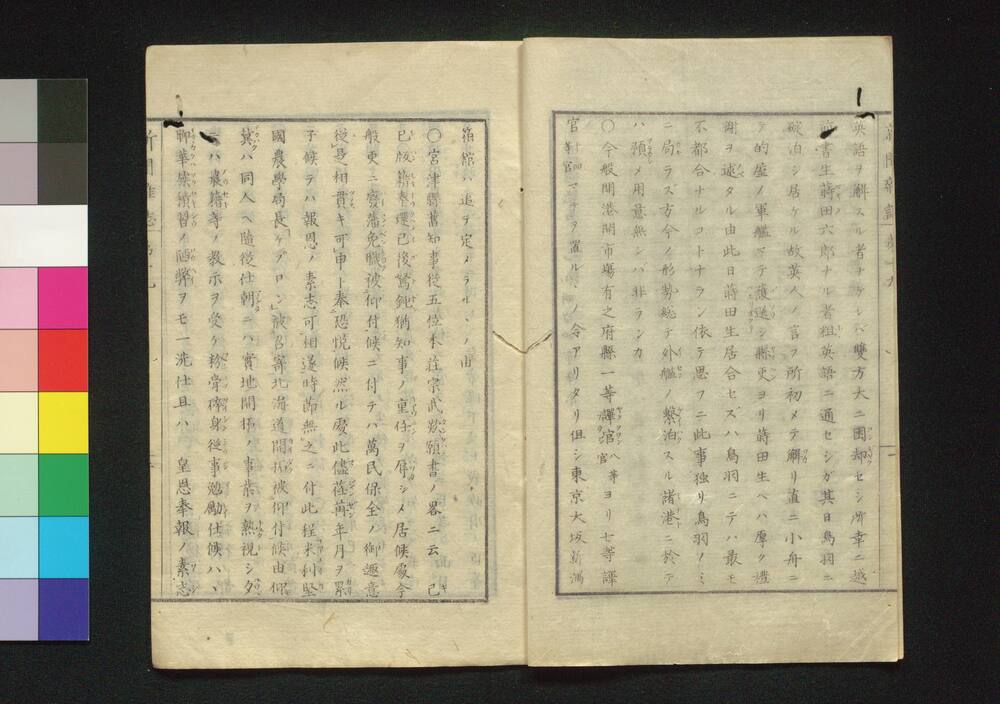 英語ヲ解スル者ナケレバ雙方大ニ困却セシ所幸ニ越
書生蒔田六郎ナル者粗英語ニ通セシガ其日鳥羽ニ
碇泊シ居ケル故英人ノ言フ所初メテ解リ直ニ小舟ニ
テ的盛ノ軍艦マテ護送シ縣吏ヨリ蒔田生ヘハ厚ク禮
謝ヲ述タル由此日蒔田生居合セズハ鳥羽ニテハ最モ
不都合ナルコトナラン依テ思フニ此事独リ鳥羽ノミ
ニ局ラズ方今ノ形勢総テ外艦ノ繋泊スル諸港ニ於テ
ハ預メ用意無ンバ非ランカ
〇今般開港開市場有之府縣一等譯官八等官ヨリ七等譯
官十四等官マテヲ置ルヽノ令アリタリ但シ東京大坂新潟
箱館ハ追テ定メラルヽノ由
〇宮津縣舊知事從五位本莊宗武歎願書ノ畧ニ云ク己
已版籍奉還已後駑鈍猶知事ノ重任ヲ辱シメ居候處今
般更ニ廢藩免職被仰付候ニ付テハ萬民保全ノ御趣意
徒是相貫キ可申ト奉恐悦候然ル處此儘荏苒年月ヲ累
子候テハ報恩ノ素志可相遂時節無之ニ付此程米利堅
國農學局長ケプロン被召寄北海道開拓被仰付候由仰
冀ハ同人ヘ隨從仕朝ニハ實地開拓ノ事業ヲ熟視シタ
ニハ農籍等ノ教示ヲ受ケ粉骨碎身從事勉勵仕候ハヽ
聊華族積習ノ陋弊ヲモ一洗仕且ハ 皇恩奉報ノ素志